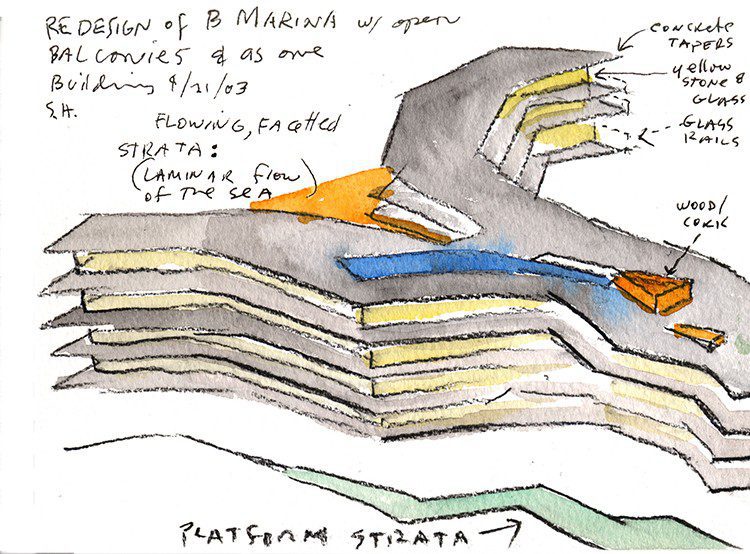 REDESIGN of B MARINA w/ open
BALCONIES & as one
Building 8/21/03
S.H.
FLOWING, FACETTED
STRATA:
(LAMINAR flow
of THE SEA)
CONCRETE
TAPERS
yellow
STONE &
GLASS
GLASS
RAILS
WOOD/
CORK
PLATFORM STRATA →